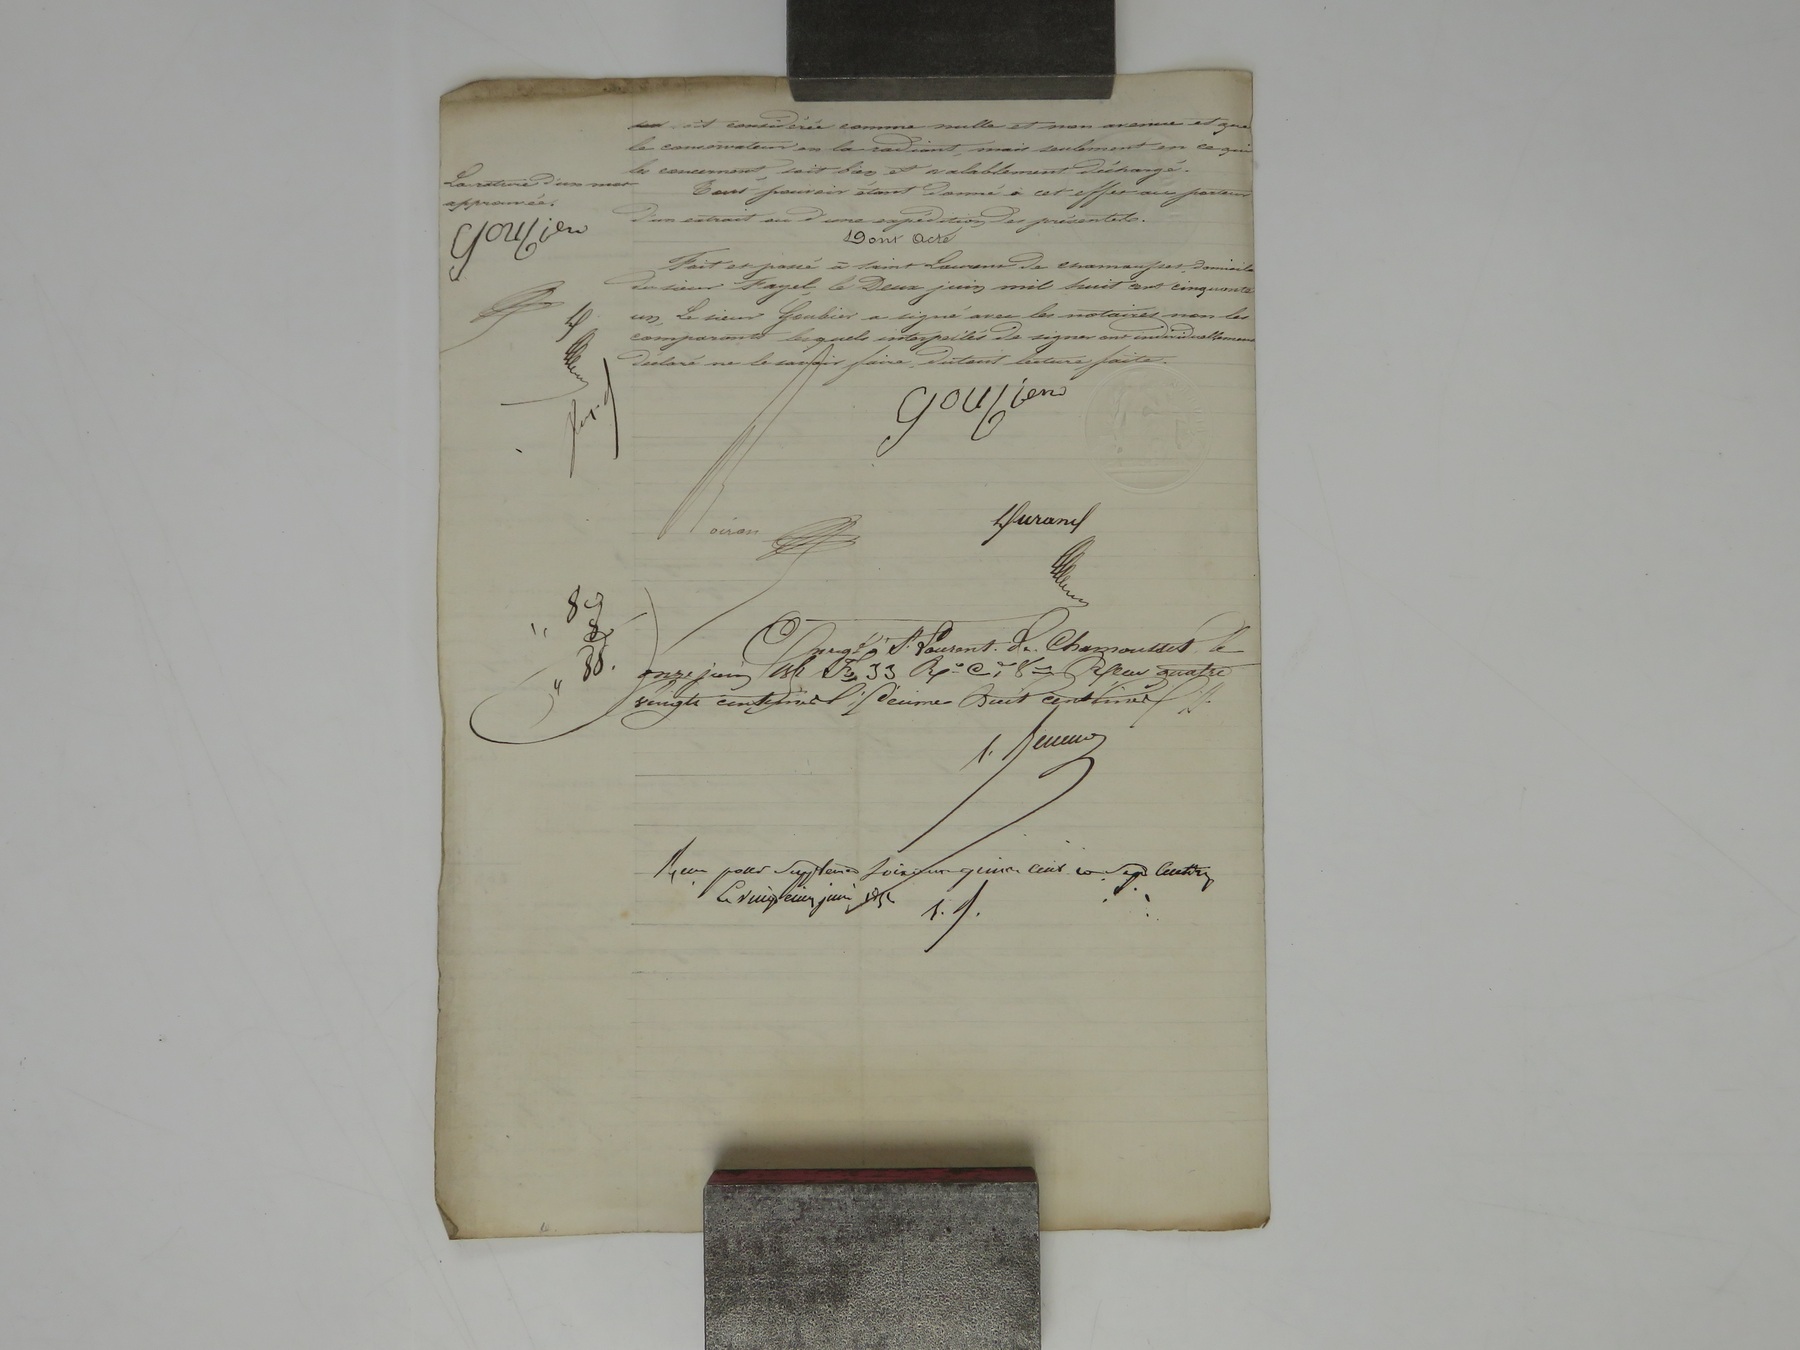 soit considérée comme nulle et non avenue et que
le conservateur en la radiant, mais seulement en ce qui
les concernent, soit bien et valablement déchargé.
Tout pouvoir étant donné à cet effet au porteur
d'un extrait ou d'une expédition des présentes.
Dont Acte
Fait et passé à Saint Laurent de Chamousset, domicile
du sieur Fayel, le Deux juin mil huit cent cinquante
un, Le sieur Goubier a signé avec les notaires non les
comparants lesquels interpellés de signer ont individuellement
déclaré ne le savoir faire, dûtent lecture faite.
La rature d'un mot
approuvée.
Goubier
Goubier
Durand
oiron
8
8
88.
Enregé à St Laurent de Chamousset le
onze juin 1851 Fo 33 Ro C. Reçu quatre
vingts centimes décime huit centimes
Reçu pour supplément soixante quinze cent
Le vingt cinq juin 1851